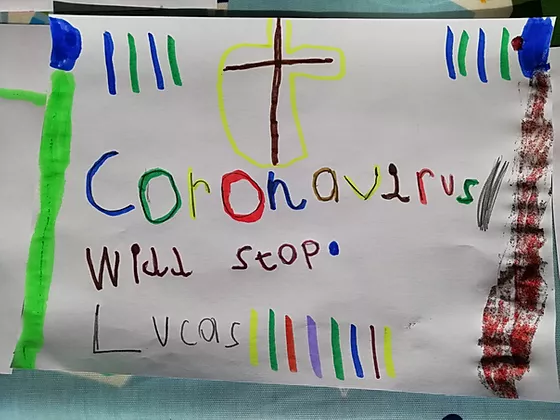 Coronavirus
Will stop.
Lucas